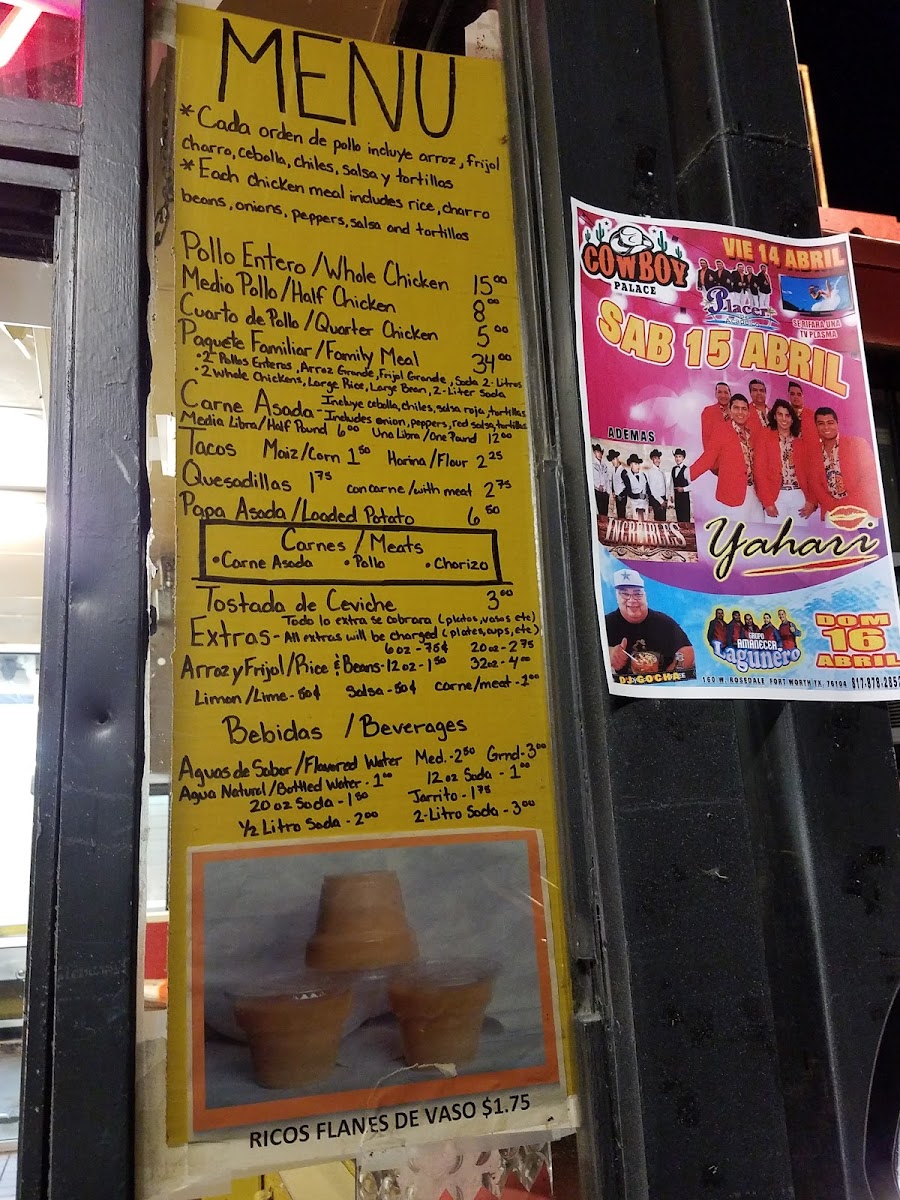 MENU
*Cada orden de pollo incluye arroz, frijol
charro, cebolla, chiles, salsa y tortillas
*Each chicken meal includes rice, charro
beans, onions, peppers, salsa and tortillas
Pollo Entero/Whole Chicken 15.00
Medio Pollo/Half Chicken 8.00
Cuarto de Pollo/Quarter Chicken 5.00
Paquete Familiar/Family Meal 34.00
•2 Pollos Enteros, Arroz Grande, Frijol Grande, Soda 2-Litros
•2 Whole Chickens, Large Rice, Large Bean, 2-Liter Soda
Carne Asada - Incluye cebolla, chiles, salsa roja, tortillas
Includes onion, peppers, red salsa, tortillas
Media Libra/Half Pound 6.00 Una Libra/One Pound 12.00
Tacos Maiz/Corn 1.50 Harina/Flour 2.25
Quesadillas 1.75 con carne/with meat 2.75
Papa Asada/Loaded Potato 6.50
Carnes/Meats
•Carne Asada •Pollo •Chorizo
Tostada de Ceviche 3.00
Extras - Todo lo extra se cobrara (platos, vasos etc)
All extras will be charged (plates, cups, etc)
6oz - 75¢ 20oz - 2.75
Arroz y Frijol/Rice & Beans - 12oz - 1.50 32oz - 4.00
Limon/Lime - 50¢ Salsa - 50¢ carne/meat - 1.00
Bebidas /Beverages
Aguas de Sabor/Flavored Water Med. - 2.50 Grnd - 3.00
Agua Natural/Bottled Water - 1.00 12oz Soda - 1.00
20oz Soda - 1.50 Jarrito - 1.75
1/2 Litro Soda - 2.00 2-Litro Soda - 3.00
RICOS FLANES DE VASO $1.75
COWBOY
PALACE
VIE 14 ABRIL
Placer
SE RIFARA UNA
TV PLASMA
SAB 15 ABRIL
ADEMAS
INCREIBLES
Yahari
DJ GOCHA
GRUPO
AMANECER
Lagunero
DOM
16
ABRIL
150 W. ROSEDALE FORT WORTH TX. 76104 817-878-2852